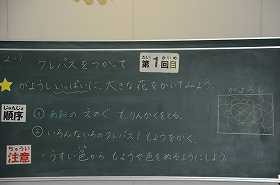 クレパスをつかって
だい 1 かいめ
第1回目
がようしいっぱいに、大きな花をかいてみよう。
じゅんじょ
順序
がようし
① あおの えのぐで、りんかくをとる。
② いろんないろのクレパスでもようをかく。
ちゅうい
注意
・うすい色からもようや色をぬるようにしよう